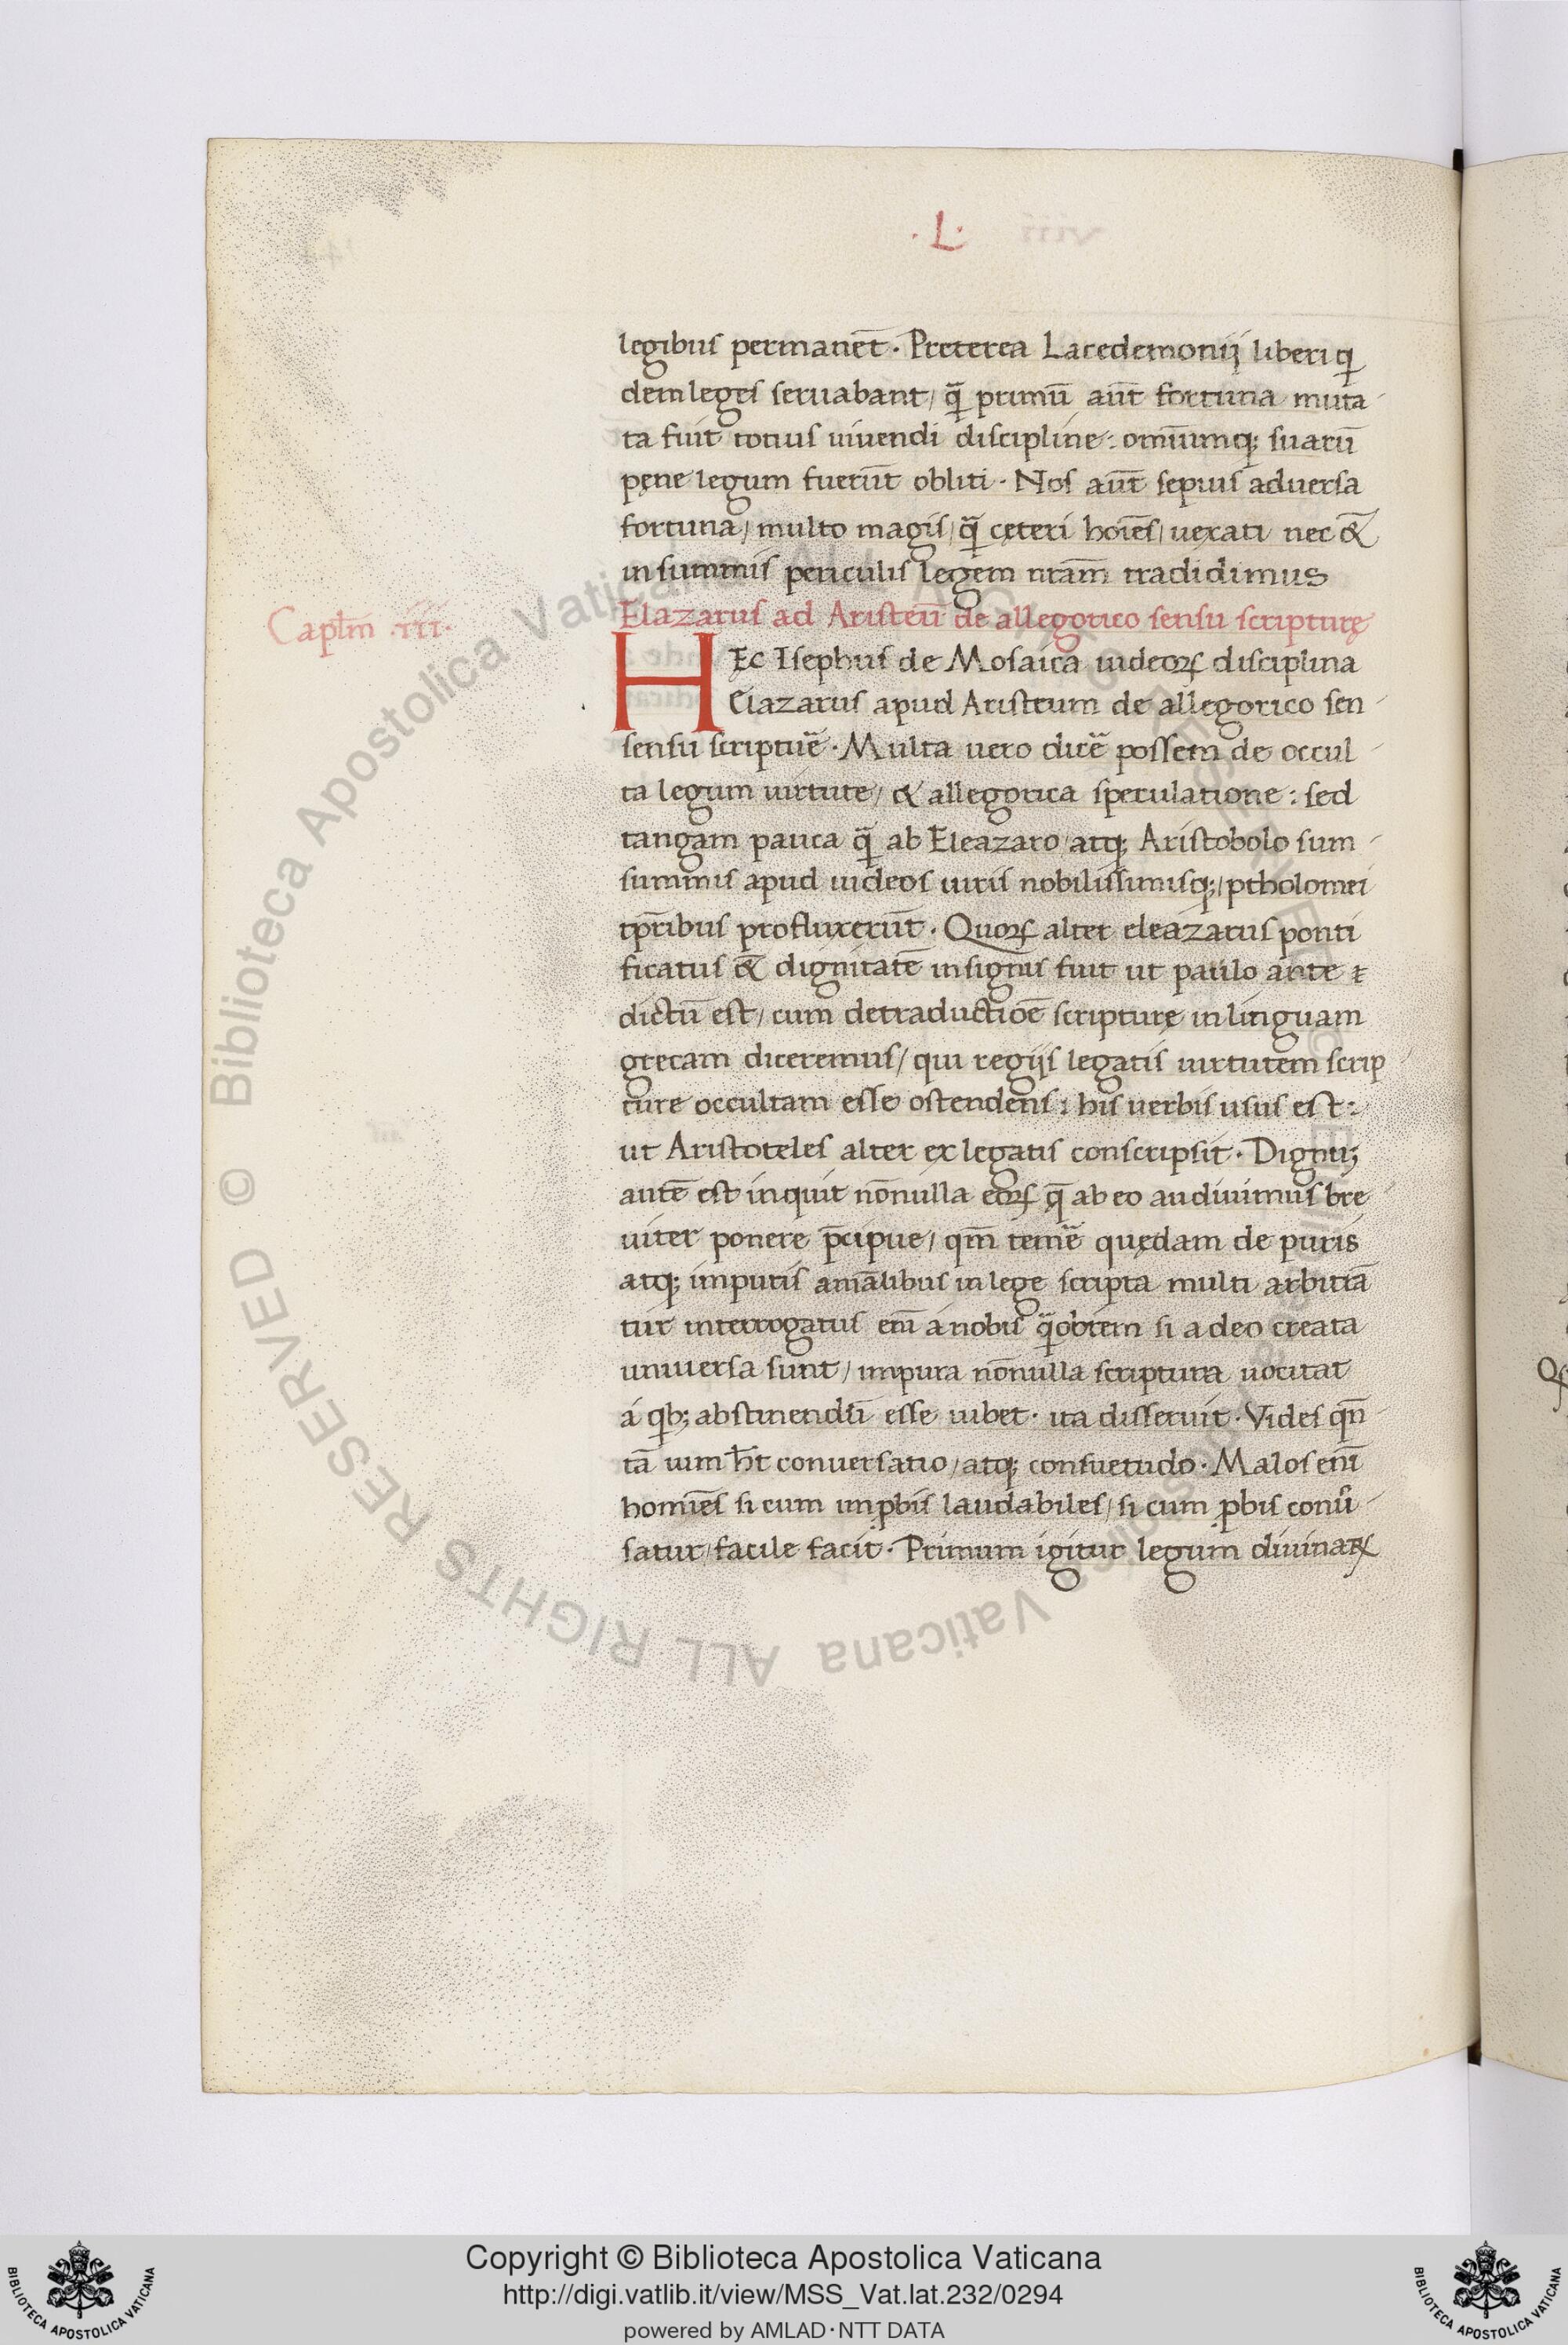 ·L·
legibus permanēt · Preterea Lacedemonij liberi q̄
dem leges seruabant / q̄ primū aūt fortuna muta
ta fuit totius uiuendi discipline : omiumq; suarū
pęne legum fuerūt obliti · Nos aūt sepius aduersa
fortuna / multo magis / q̄ cęteri hoīes / uexati nec &
in summis periculis legem nrām tradidimus
Elazarus ad Aristeū de allegorico sensu scripturę
Capl̄m ·iii·
HEc Isephus de Mosaica iudeoꝝ disciplina
Elazarus apud Aristeum de allegorico sen
sensu scriptuē · Multa uero dicē possem de occul
ta legum uirtute / & allegorica speculatione : sed
tangam pauca q̄ ab Eleazaro atq; Aristobolo sum
summis apud iudeos uiris nobilissimisq; / ptholomei
tp̄ribus profluxerūt · Quoꝝ alter eleazarus ponti
ficatus & dignitatē insignis fuit ut paulo ante
dictū est / cum detraductiōe scripturę in linguam
grecam diceremus / qui regijs legatis uirtutem scrip
ture occultam esse ostendens : his uerbis usus est :
ut Aristoteles alter ex legatis conscripsit · Digntu;
autē est inquit nōnulla eoꝝ q̄ ab eo audiuimus bre
uiter ponere p̄cipue / qm̄ temē quędam de puris
atq; impuris amālibus in lege scripta multi arbitrā
tur interrogatus em̄ á nobis q̄obrem si a deo creata
uniuersa sunt / impura nōnulla scriptura uocitat
á qb; abstinendū esse iubet · ita disseruit · Vides qn̄
tā uim h̄t conuersatio / atq; consuetudo · Malos enī
homiēs si cum imꝓbis laudabiles / si cum ꝓbis conū
satur / facile facit · Primum igitur legum diuinaꝝ
Copyright © Biblioteca Apostolica Vaticana
http://digi.vatlib.it/view/MSS_Vat.lat.232/0294
powered by AMLAD·NTT DATA
BIBLIOTECA APOSTOLICA VATICANA
BIBLIOTECA APOSTOLICA VATICANA
© Biblioteca Apostolica Vaticana ALL RIGHTS RESERVED